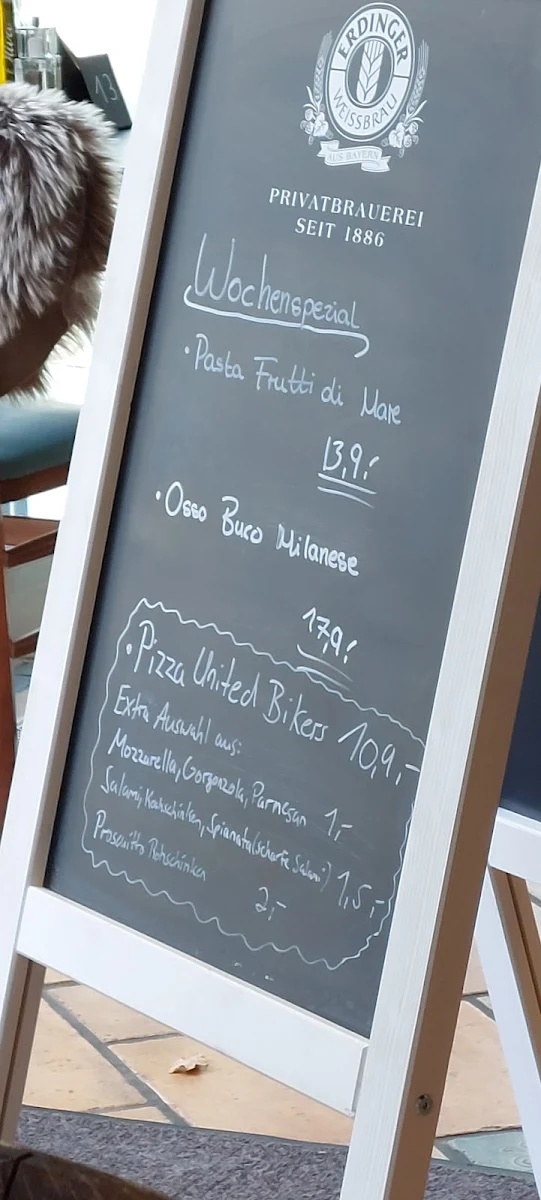 13
ERDINGER
WEISSBRÄU
AUS BAYERN
PRIVATBRAUEREI
SEIT 1886
Wochenspezial
• Pasta Frutti di Mare
13,9,-
• Osso Buco Milanese
17,9,-
• Pizza United Bikers 10,9,-
Extra Auswahl aus:
Mozzarella, Gorgonzola, Parmesan 1,-
Salami, Kochschinken, Spianata (scharfe Salami) 1,5,-
Prosciutto Rohschinken
2,-